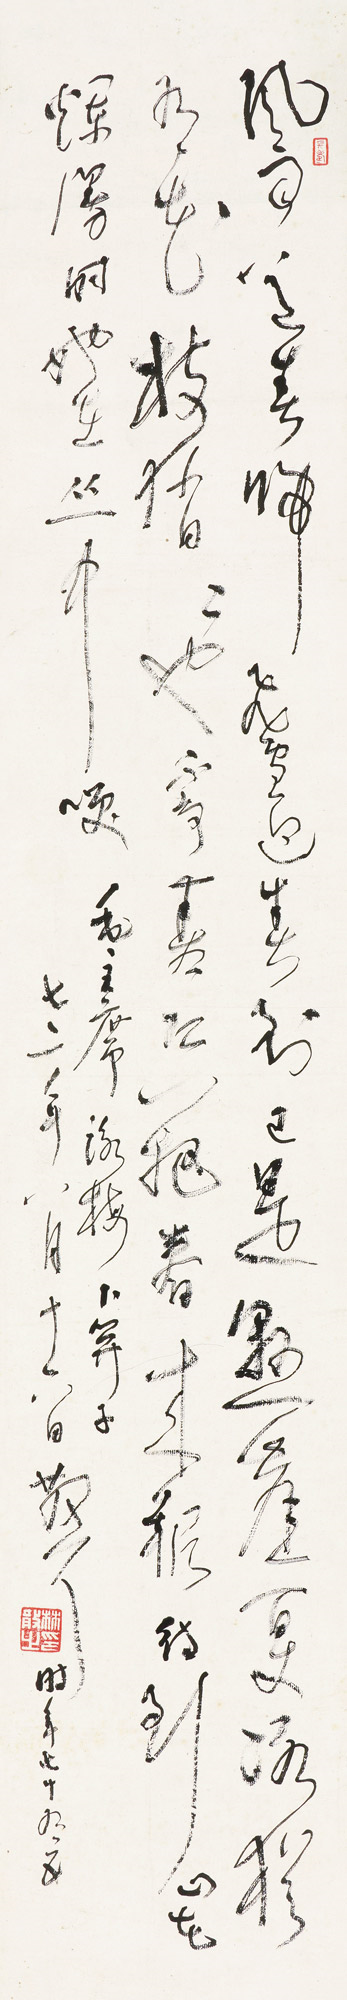 風雨送春歸飛雪迎春到已是懸崖百丈冰猶
有花枝俏〻也不爭春只把春來報待到山花
爛漫时她在丛中咲 毛主席詠梅卜算子
七二年八月十六日 散耳 时年七十有五
林散之印